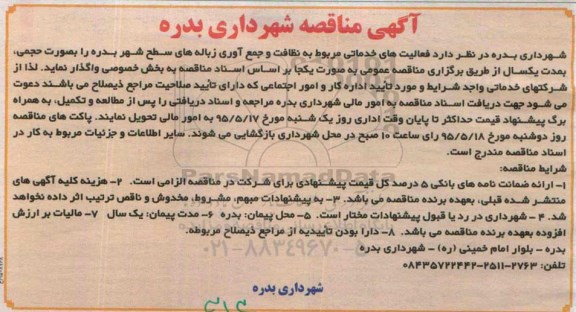 آگهی مناقصه شهرداری بدره
شهرداری بدره در نظر دارد فعالیت های خدماتی مربوط به نظافت و جمع آوری زباله های سطح شهر بدره را بصورت حجمی،
بمدت یکسال از طریق برگزاری مناقصه عمومی به صورت یکجا بر اساس اسناد مناقصه به بخش خصوصی واگذار نماید. لذا از
شرکتهای خدماتی واجد شرایط و مورد تأیید اداره کار و امور اجتماعی که دارای تأیید صلاحیت مراجع ذیصلاح می باشند دعوت
می شود جهت دریافت اسناد مناقصه به امور مالی شهرداری بدره مراجعه و اسناد دریافتی را پس از مطالعه و تکمیل، به همراه
برگ پیشنهاد قیمت حداکثر تا پایان وقت اداری روز یک شنبه مورخ ۹۵/۵/۱۷ به امور مالی تحویل نمایند. پاکت های مناقصه
روز دوشنبه مورخ ۹۵/۵/۱۸ رای ساعت ۱۰ صبح در محل شهرداری بازگشایی می شوند. سایر اطلاعات و جزئیات مربوط به کار در
اسناد مناقصه مندرج است.
شرایط مناقصه:
۱- ارائه ضمانت نامه های بانکی ۵ درصد کل قیمت پیشنهادی برای شرکت در مناقصه الزامی است. ۲- هزینه کلیه آگهی های
منتشر شده قبلی، بعهده برنده مناقصه می باشد. ۳- به پیشنهادات مبهم مشروط مخدوش و ناقص ترتیب اثر داده نخواهد
شد. ۴- شهرداری در رد یا قبول پیشنهادات مختار است. ۵- محل پیمان: بدره ۶- مدت پیمان: یک سال ۷- مالیات بر ارزش
افزوده بعهده برنده مناقصه می باشد. ۸- دارا بودن تأییدیه از مراجع ذیصلاح مربوطه.
بدره - بلوار امام خمینی (ره) - شهرداری بدره
تلفن: ۲۷۶۳-۲۵۱۱-۰۸۴۳۵۷۲۲۴۴۲
شهرداری بدره
ParsNamadData
۰۲۱-۸۸۳۴۹۶۷۰-۵